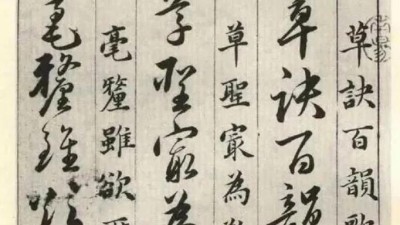 草訣百韻歌
草訣百韻
草聖㝡為
草聖㝡為
毫釐雖欲
毫釐雖欲